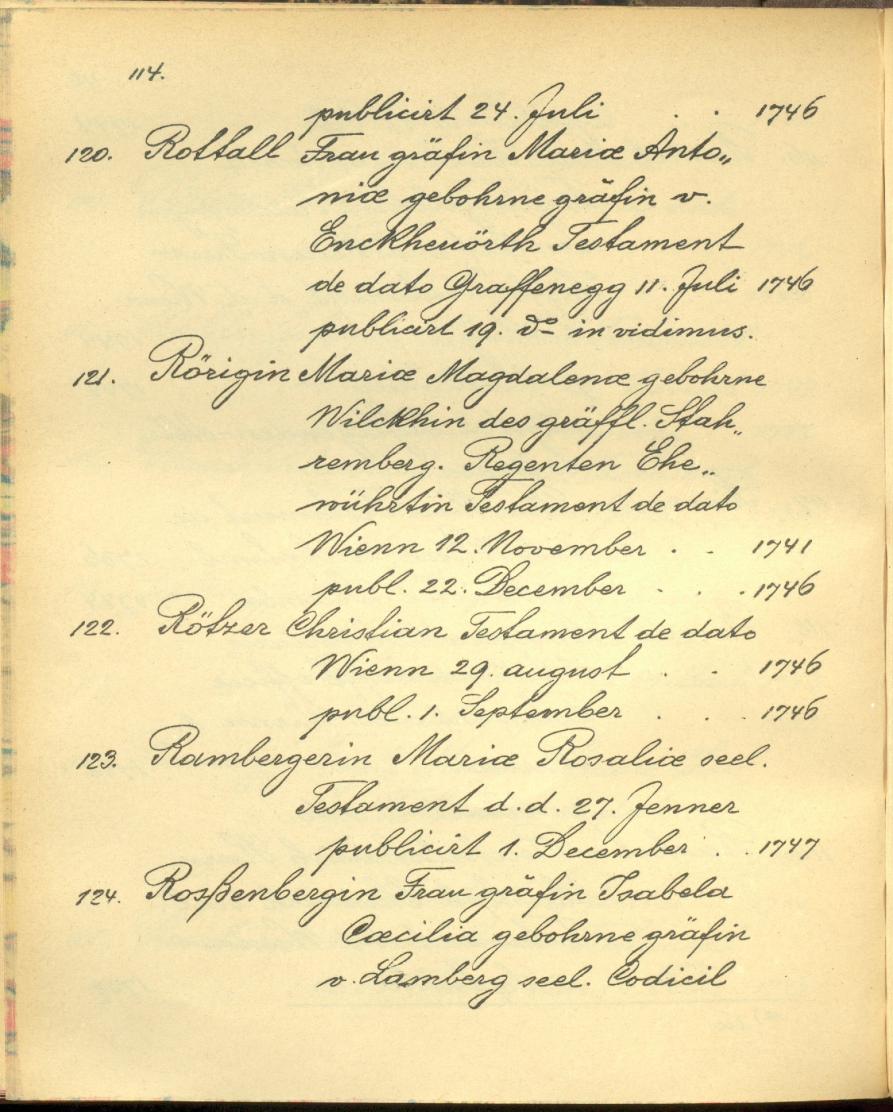 114.
publicirt 24. Juli . . 1746
120. Rottall Frau gräfin Mariæ Anto„
niæ gebohrne gräfin v.
Enckheuörth Testament
de dato Graffenegg 11. Juli 1746
publicirt 19. do in vidimus.
121. Rörigin Mariæ Magdalenæ gebohrne
Wilckhin des gräffl. Stah„
remberg. Regenten Ehe„
würthin Testament de dato
Wienn 12. November . . 1741
publ. 22. December . . . 1746
122. Rötzer Christian Testament de dato
Wienn 29. august . . 1746
publ. 1. September . . . 1746
123. Rambergerin Mariæ Rosaliæ seel.
Testament d. d. 27. Jenner
publicirt 1. December . . 1747
124. Rosßenbergin Frau gräfin Isabela
Cæcilia gebohrne gräfin
v. Lamberg seel. Codicil